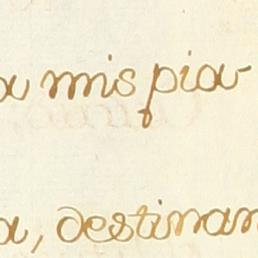 a mis pia-
a, destinan